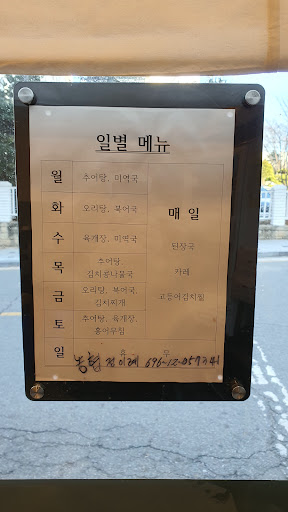 일별 메뉴
월 추어탕, 미역국
화 오리탕, 북어국
수 육개장, 미역국
목 추어탕, 김치콩나물국
금 오리탕, 북어국, 김치찌개
토 추어탕, 육개장, 홍어무침
일 휴 무
매 일
된장국
카레
고등어김치찜
농협